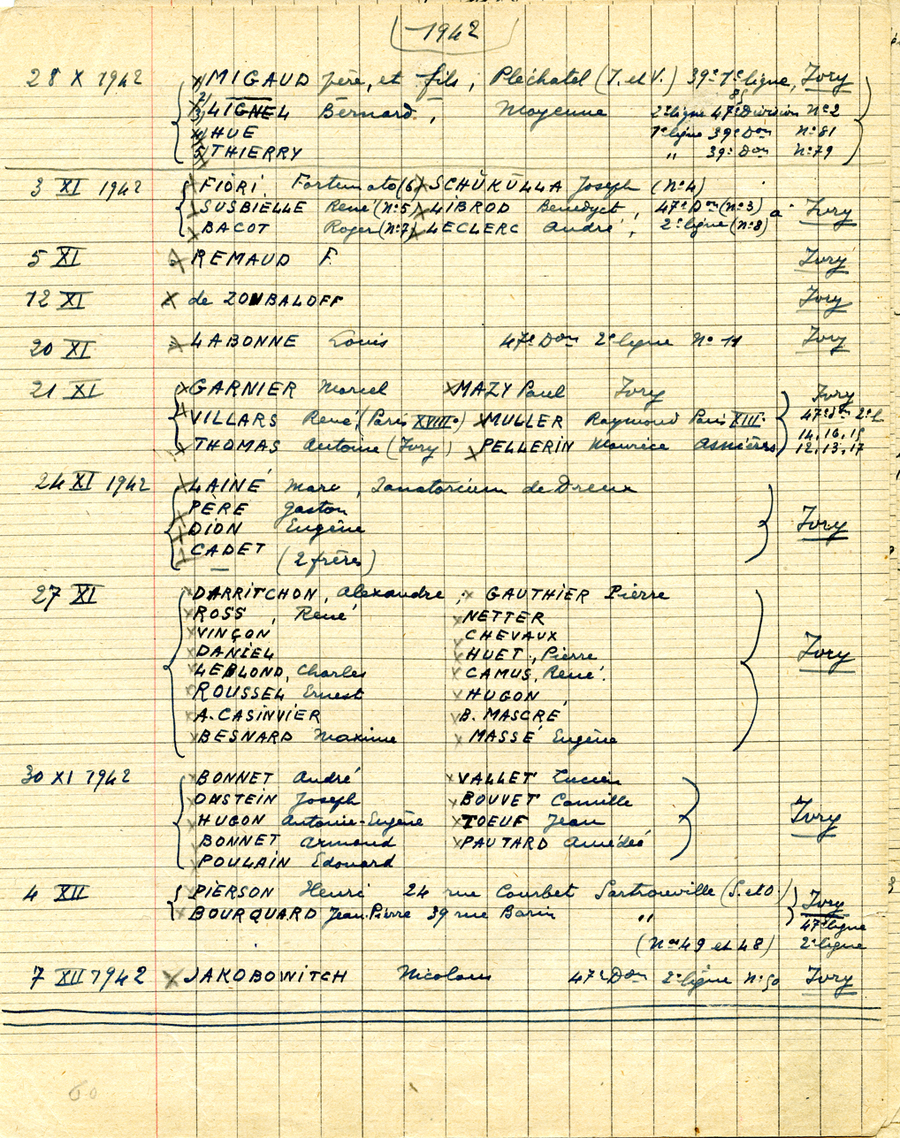 1942
28 X 1942 1) MIGAUD père, et fils, Pléchatel (I. et V.) 39e 1e ligne, Ivry
3) LIGNEL Bernard, Mayenne 2e ligne 47e Division No 2
4) HUE 1e ligne 39e Don No 81
5) THIERRY " 39e Don No 79
3 XI 1942 FIORI Fortunato (6) SCHÜKÜLLA Joseph (No 4)
SUSBIELLE René (No 5) LIBROD Benedyct, 47e Don (No 3) à Ivry
BACOT Roger (No 7) LECLERC André, 2e ligne (No 8)
5 XI REMAUD F. Ivry
12 XI de ZOUBALOFF Ivry
20 XI LABONNE Louis 47e Don 2e ligne No 11 Ivry
21 XI GARNIER Marcel MAZY Paul Ivry Ivry
VILLARS René, (Paris XVIIIe) MULLER Raymond Paris XIIIe 47e Don 2e l.
THOMAS Antoine (Ivry) PELLERIN Maurice Asnières 14, 16, 15
12, 13, 17
24 XI 1942 LAINÉ Marc, Sanatorium de Dreux
PÈRE Gaston
DION Eugène Ivry
CADET (2 frères)
27 XI DARRITCHON, Alexandre, GAUTHIER Pierre
ROSS, René NETTER
VINÇON CHEVAUX
DANIEL HUET, Pierre Ivry
LEBLOND, Charles CAMUS, René.
ROUSSEL Ernest HUGON
A. CASINVIER B. MASCRÉ
BESNARD Maxime MASSÉ Eugène
30 XI 1942 BONNET André VALLET Lucien
ONSTEIN Joseph BOUVET Camille
HUGON Antoine-Eugène TOEUF Jean Ivry
BONNET Armand PAUTARD Amédée
POULAIN Edouard
4 XII PIERSON Henri 24 rue Courbet Sartrouville (S. et O.) Ivry
BOURQUARD Jean-Pierre 39 rue Barin " 47e ligne
(Nos 49 et 48) 2e ligne
7 XII 1942 JAKOBOWITCH Nicolaus 47e Don 2e ligne No 50 Ivry
60